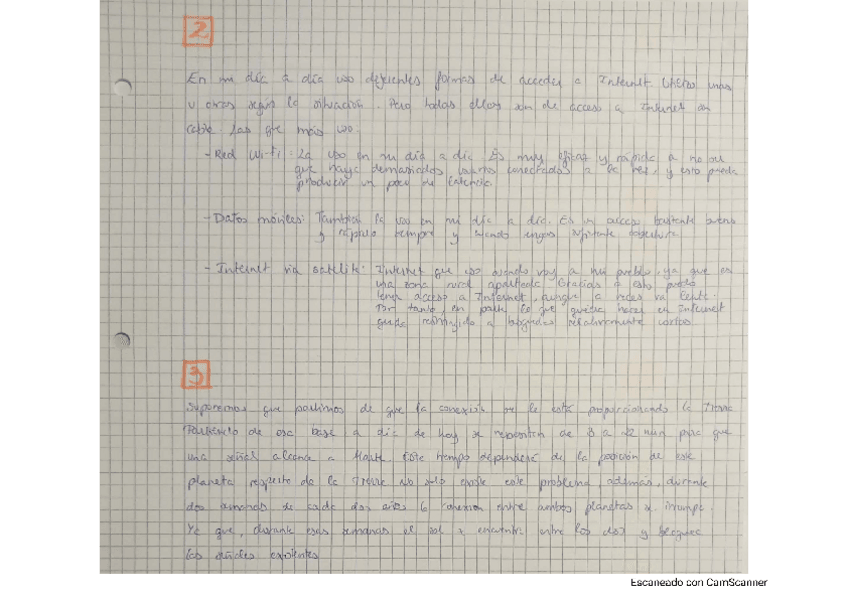 2
En mi día a día uso diferentes formas de acceder a Internet. Utilizo unas
u otras según la situación. Pero todas ellas son de acceso a Internet sin
cable. Las que más uso
- Red Wi-Fi: La uso en mi día a día. Es muy eficaz y rápida a no ser
que haya demasiados conectados a la vez, y esto pueda
producir un poco de latencia.
- Datos móviles: También la uso en mi día a día. Es un acceso bastante bueno
y rápido siempre y cuando tengas suficiente cobertura.
- Internet via satélite: Internet que uso cuando voy a mi pueblo, ya que es
una zona rural apartada. Gracias a esto puedo
tener acceso a Internet, aunque a veces va lento.
Por tanto, en parte lo que quiera hacer en Internet
queda restringido a búsquedas relativamente cortas.
3
Suponemos que partimos de que la conexión se le está proporcionando la Tierra
Partiendo de esa base a día de hoy se necesitan de 3 a 22 min para que
una señal alcance a Marte. Este tiempo dependerá de la posición de este
planeta respecto de la Tierra. No solo existe este problema, además, durante
dos semanas de cada dos años la conexión entre ambos planetas se interrumpe.
Ya que, durante esas semanas el sol se encuentra entre los dos y bloquea
las señales existentes
Escaneado con CamScanner